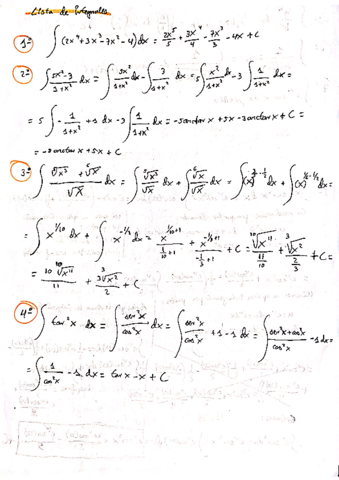 Lista de Integrales
1º ∫(2x⁴+3x³-7x²-4)dx = 2x⁵/5 + 3x⁴/4 - 7x³/3 - 4x + C
2º ∫ 5x²-3/1+x² dx = ∫ 5x²/1+x² dx - ∫ 3/1+x² dx = 5∫ x²/1+x² dx - 3∫ 1/1+x² dx =
= 5∫ -1/1+x² + 1 dx - 3∫ 1/1+x² dx = -5 arctan x + 5x - 3 arctan x + C =
= -8 arctan x + 5x + C
3º ∫ ⁵√x³ + ⁶√x/√x dx = ∫ ⁵√x³/√x dx + ∫ ⁶√x/√x dx = ∫(x)^3/5-1/2 dx + ∫(x)^1/6-1/2 dx =
= ∫ x^1/10 dx + ∫ x^-1/3 dx = x^1/10+1/(1/10+1) + x^-1/3+1/(-1/3+1) + C = ¹⁰√x¹¹/(11/10) + ³√x²/(2/3) + C =
= 10 ¹⁰√x¹¹/11 + 3 ³√x²/2 + C
4º ∫ tan²x dx = ∫ sen²x/cos²x dx = ∫ sen²x/cos²x + 1 - 1 dx = ∫ sen²x + cos²x/cos²x - 1 dx =
= ∫ 1/cos²x - 1 dx = tan x - x + C